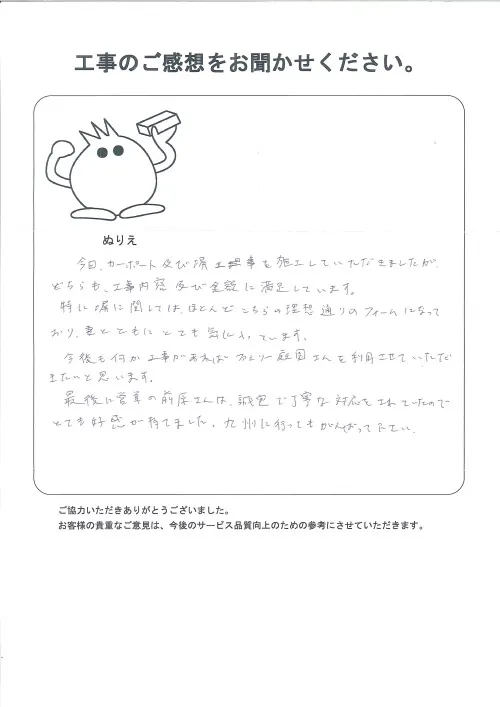 工事のご感想をお聞かせください。
ぬりえ
今回、カーポート及び塀工事を施工していただきましたが、
どちらも、工事内容及び金額に満足しています。
特に塀に関しては、ほとんどこちらの理想通りのフォームになって
おり、妻とともにとても気に入っています。
今後も何か工事があれば ファミリー庭園さんを利用させていただ
きたいと思います。
最後に営業の前原さんは、誠実で丁寧な対応をされていたので
とても好感が持てました。九州に行ってもがんばって下さい。
ご協力いただきありがとうございました。
お客様の貴重なご意見は、今後のサービス品質向上のための参考にさせていただきます。